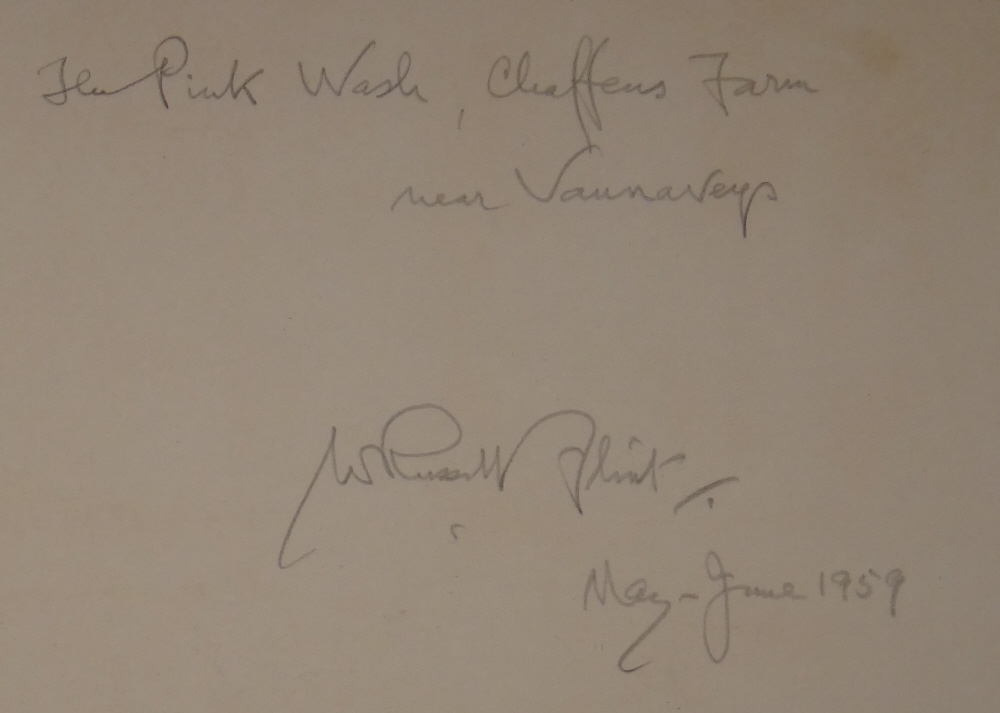 The Pink Wash, Chaffens Farm
near Vaunaveys
W Russell Flint
May - June 1959